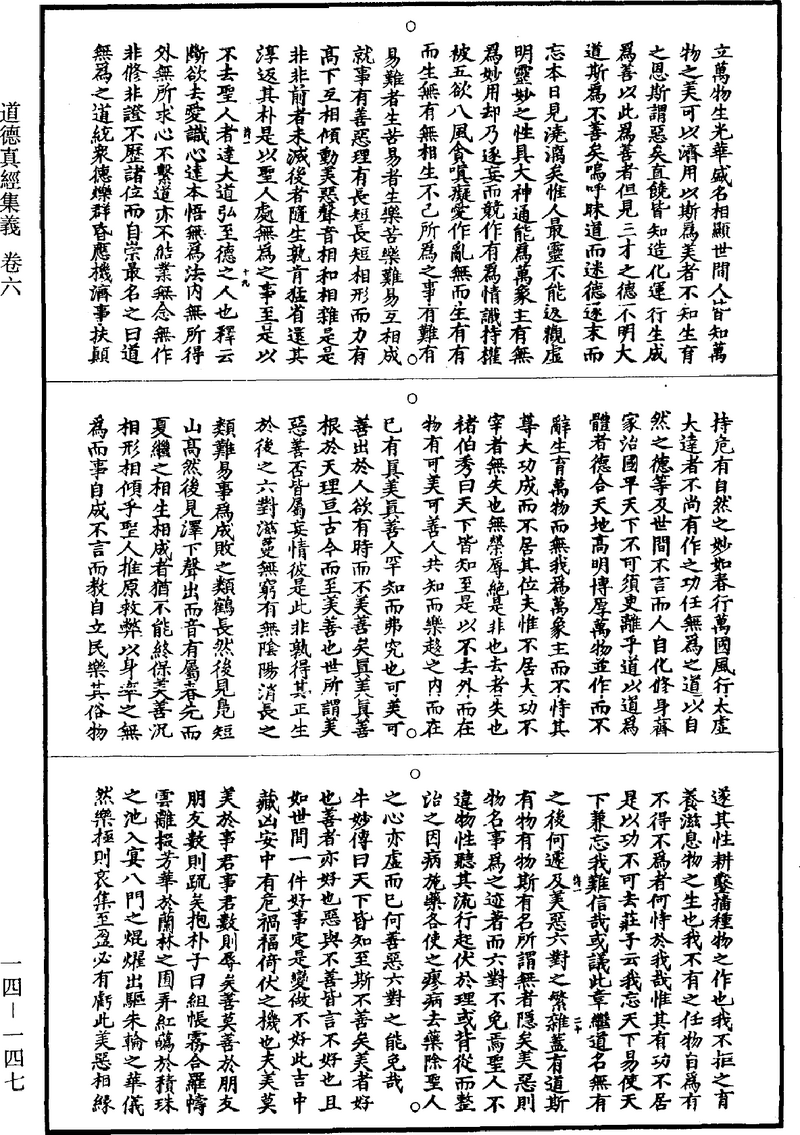 道德真經集義 卷六
一四—一四七
立萬物生光華盛名相顯世間人皆知萬
物之美可以濟用以斯為美者不知生育
之恩斯謂惡矣直饒皆知造化運行生成
為善以此為善者但見三才之德不明大
道斯為不善矣嗚呼昧道而迷德逐末而
忘本日見澆漓矣惟人最靈不能返觀虛
明靈妙之性具大神通能為萬象主有無
為妙用却乃逐妄而競作有為情識持權
被五欲八風貪嗔癡愛作亂無而生有有
而生無有無相生不已所為之事有難有
易難者生苦易者生樂苦樂難易互相成
就事有善惡理有長短長短相形而力有
高下互相傾動美惡聲音相和相雜是是
非非前者未滅後者隨生孰肯猛省還其
淳返其朴是以聖人處無為之事至是以
不去聖人者達大道弘至德之人也釋云
斷欲去愛識心達本悟無為法內無所得
外無所求心不繫道亦不結業無念無作
非修非證不歷諸位而自崇最名之曰道
無為之道統衆德爍群昏應機濟事扶顛
持危有自然之妙如春行萬國風行太虛
大達者不尚有作之功任無為之道以自
然之德等及世間不言而人自化修身齊
家治國平天下不可須臾離乎道以道為
體者德合天地高明博厚萬物並作而不
辭生育萬物而無我為萬象主而不恃其
尊大功成而不居其位夫惟不居大功不
宰者無失也無榮辱絶是非也去者失也
褚伯秀曰天下皆知至是以不去外而在
物有可美可善人共知而樂趨之内而在
已有真美真善人罕知而弗究也可美可
善出於人欲有時而不美善矣真美真善
根於天理亘古今而至美善也世所謂美
惡善否皆屬妄情彼是此非孰得其正生
於後之六對滋蔓無窮有無陰陽消長之
類難易事為成敗之類鶴長然後見鳧短
山高然後見澤下聲出而音有屬春先而
夏繼之相生相成者猶不能終保美善況
相形相傾乎聖人推原救弊以身率之無
為而事自成不言而教自立民樂其俗物
遂其性耕鑿播種物之作也我不拒之育
養滋息物之生也我不有之任物自為有
不得不為者何恃於我哉惟其有功不居
是以功不可去莊子云我忘天下易使天
下兼忘我難信哉或議此章繼道名無有
之後何遽及美惡六對之繁雜蓋有道斯
有物有物斯有名所謂無者隱矣美惡則
物名事為之迹著而六對不免焉聖人不
違物性聽其流行起伏於理或背從而整
治之因病施藥各使之瘳病去藥除聖人
之心亦虛而已何善惡六對之能免哉
牛妙傳曰天下皆知至斯不善矣美者好
也善者亦好也惡與不善皆言不好也且
如世間一件好事定是變做不好此吉中
藏凶安中有危禍福倚伏之機也夫美莫
美於事君事君數則辱矣善莫善於朋友
朋友數則疏矣抱朴子曰組帳霧合羅幬
雲離掇芳華於蘭林之囿弄紅葩於積珠
之池入宴八門之焜燿出驅朱輪之華儀
然樂極則哀集至盈必有虧此美惡相緣